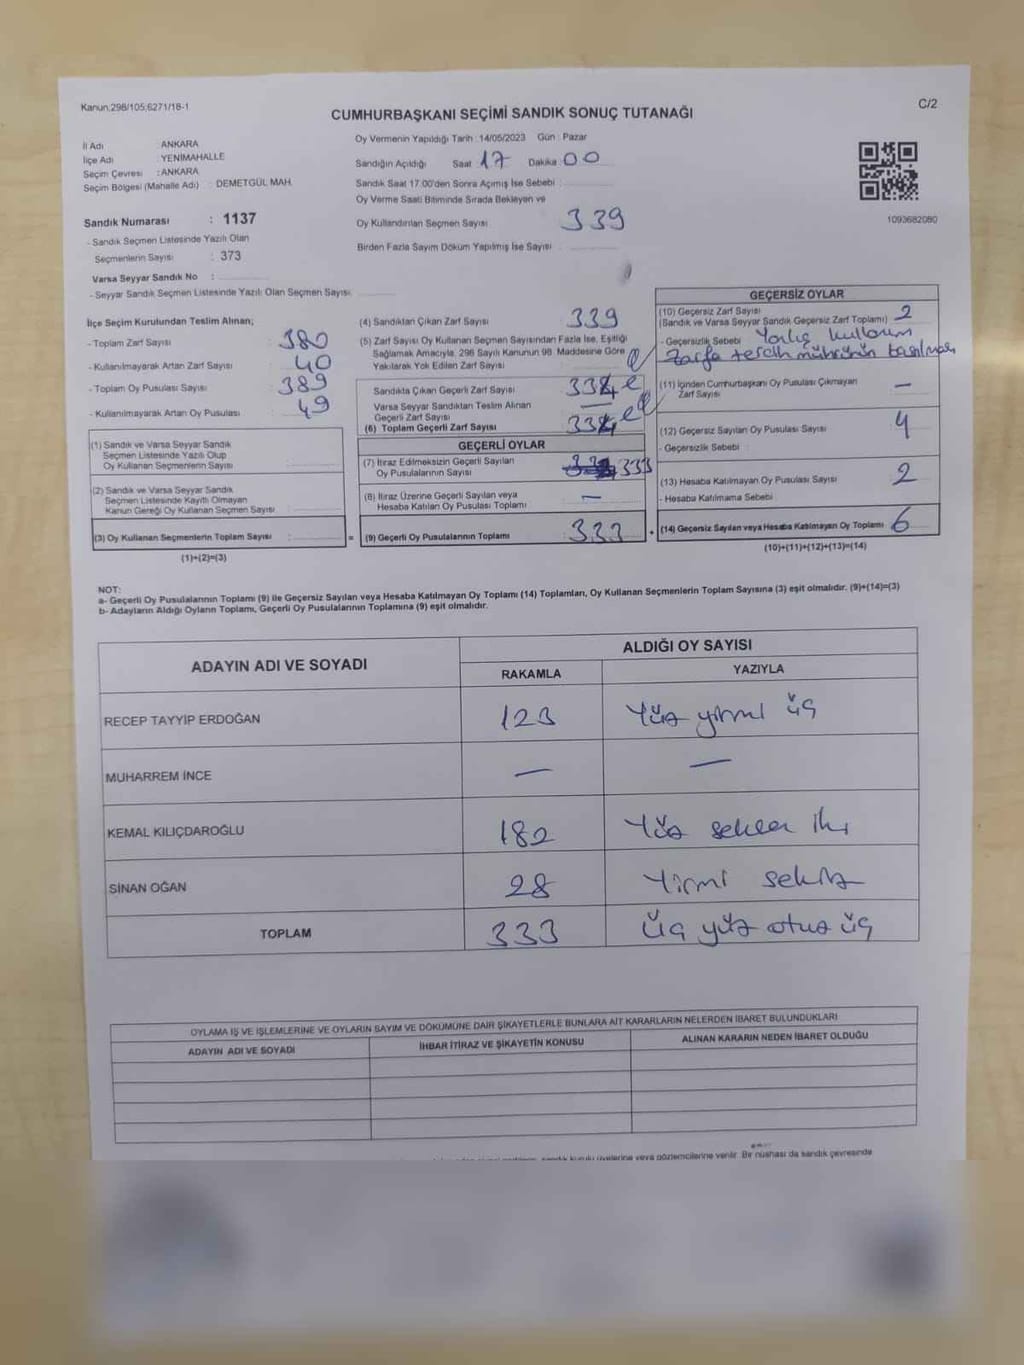 Kanun:298/105,6271/18-1
C/2
CUMHURBAŞKANI SEÇİMİ SANDIK SONUÇ TUTANAĞI
İl Adı : ANKARA
İlçe Adı : YENİMAHALLE
Seçim Çevresi : ANKARA
Seçim Bölgesi (Mahalle Adı) : DEMETGÜL MAH.
Sandık Numarası : 1137
- Sandık Seçmen Listesinde Yazılı Olan
Seçmenlerin Sayısı : 373
Varsa Seyyar Sandık No :
- Seyyar Sandık Seçmen Listesinde Yazılı Olan Seçmen Sayısı
Oy Vermenin Yapıldığı Tarih : 14/05/2023 Gün : Pazar
Sandığın Açıldığı Saat 17 Dakika 00
Sandık Saat 17.00'den Sonra Açımış İse Sebebi :
Oy Verme Saati Bitiminde Sırada Bekleyen ve
Oy Kullandırılan Seçmen Sayısı 339
Birden Fazla Sayım Döküm Yapılmış İse Sayısı
1093682080
İlçe Seçim Kurulundan Teslim Alınan;
- Toplam Zarf Sayısı 380
- Kullanılmayarak Artan Zarf Sayısı 40
- Toplam Oy Pusulası Sayısı 389
- Kullanılmayarak Artan Oy Pusulası 49
(1) Sandık ve Varsa Seyyar Sandık
Seçmen Listesinde Yazılı Olup
Oy Kullanan Seçmenlerin Sayısı
(2) Sandık ve Varsa Seyyar Sandık
Seçmen Listesinde Kayıtlı Olmayan
Kanun Gereği Oy Kullanan Seçmen Sayısı
(3) Oy Kullanan Seçmenlerin Toplam Sayısı : =
(1)+(2)=(3)
(4) Sandıktan Çıkan Zarf Sayısı 339
(5) Zarf Sayısı Oy Kullanan Seçmen Sayısından Fazla İse, Eşitliği
Sağlamak Amacıyla, 298 Sayılı Kanunun 98. Maddesine Göre
Yakılarak Yok Edilen Zarf Sayısı
Sandıkta Çıkan Geçerli Zarf Sayısı
Varsa Seyyar Sandıktan Teslim Alınan
Geçerli Zarf Sayısı —
(6) Toplam Geçerli Zarf Sayısı
GEÇERLİ OYLAR
(7) İtiraz Edilmeksizin Geçerli Sayılan
Oy Pusulalarının Sayısı 333
(8) İtiraz Üzerine Geçerli Sayılan veya
Hesaba Katılan Oy Pusulası Toplamı —
(9) Geçerli Oy Pusulalarının Toplamı 333 +
GEÇERSİZ OYLAR
(10) Geçersiz Zarf Sayısı 2
(Sandık ve Varsa Seyyar Sandık Geçersiz Zarf Toplamı)
- Geçersizlik Sebebi Yanlış kullanım
Zarfa tercih mührünün basılması
(11) İçinden Cumhurbaşkanı Oy Pusulası Çıkmayan
Zarf Sayısı —
(12) Geçersiz Sayılan Oy Pusulası Sayısı 4
- Geçersizlik Sebebi :
(13) Hesaba Katılmayan Oy Pusulası Sayısı 2
- Hesaba Katılmama Sebebi
(14) Geçersiz Sayılan veya Hesaba Katılmayan Oy Toplamı 6
(10)+(11)+(12)+(13)=(14)
NOT:
a- Geçerli Oy Pusulalarının Toplamı (9) ile Geçersiz Sayılan veya Hesaba Katılmayan Oy Toplamı (14) Toplamları, Oy Kullanan Seçmenlerin Toplam Sayısına (3) eşit olmalıdır. (9)+(14)=(3)
b- Adayların Aldığı Oyların Toplamı, Geçerli Oy Pusulalarının Toplamına (9) eşit olmalıdır.
ADAYIN ADI VE SOYADI ALDIĞI OY SAYISI
RAKAMLA YAZIYLA
RECEP TAYYİP ERDOĞAN 123 Yüz yirmi üç
MUHARREM İNCE — —
KEMAL KILIÇDAROĞLU 182 Yüz seksen iki
SİNAN OĞAN 28 Yirmi sekiz
TOPLAM 333 Üç yüz otuz üç
OYLAMA İŞ VE İŞLEMLERİNE VE OYLARIN SAYIM VE DÖKÜMÜNE DAİR ŞİKAYETLERLE BUNLARA AİT KARARLARIN NELERDEN İBARET BULUNDUKLARI
ADAYIN ADI VE SOYADI İHBAR İTİRAZ VE ŞİKAYETİN KONUSU ALINAN KARARIN NEDEN İBARET OLDUĞU
sandık kurulu üyelerine veya gözlemcilerine verilir. Bir nüshası da sandık çevresinde